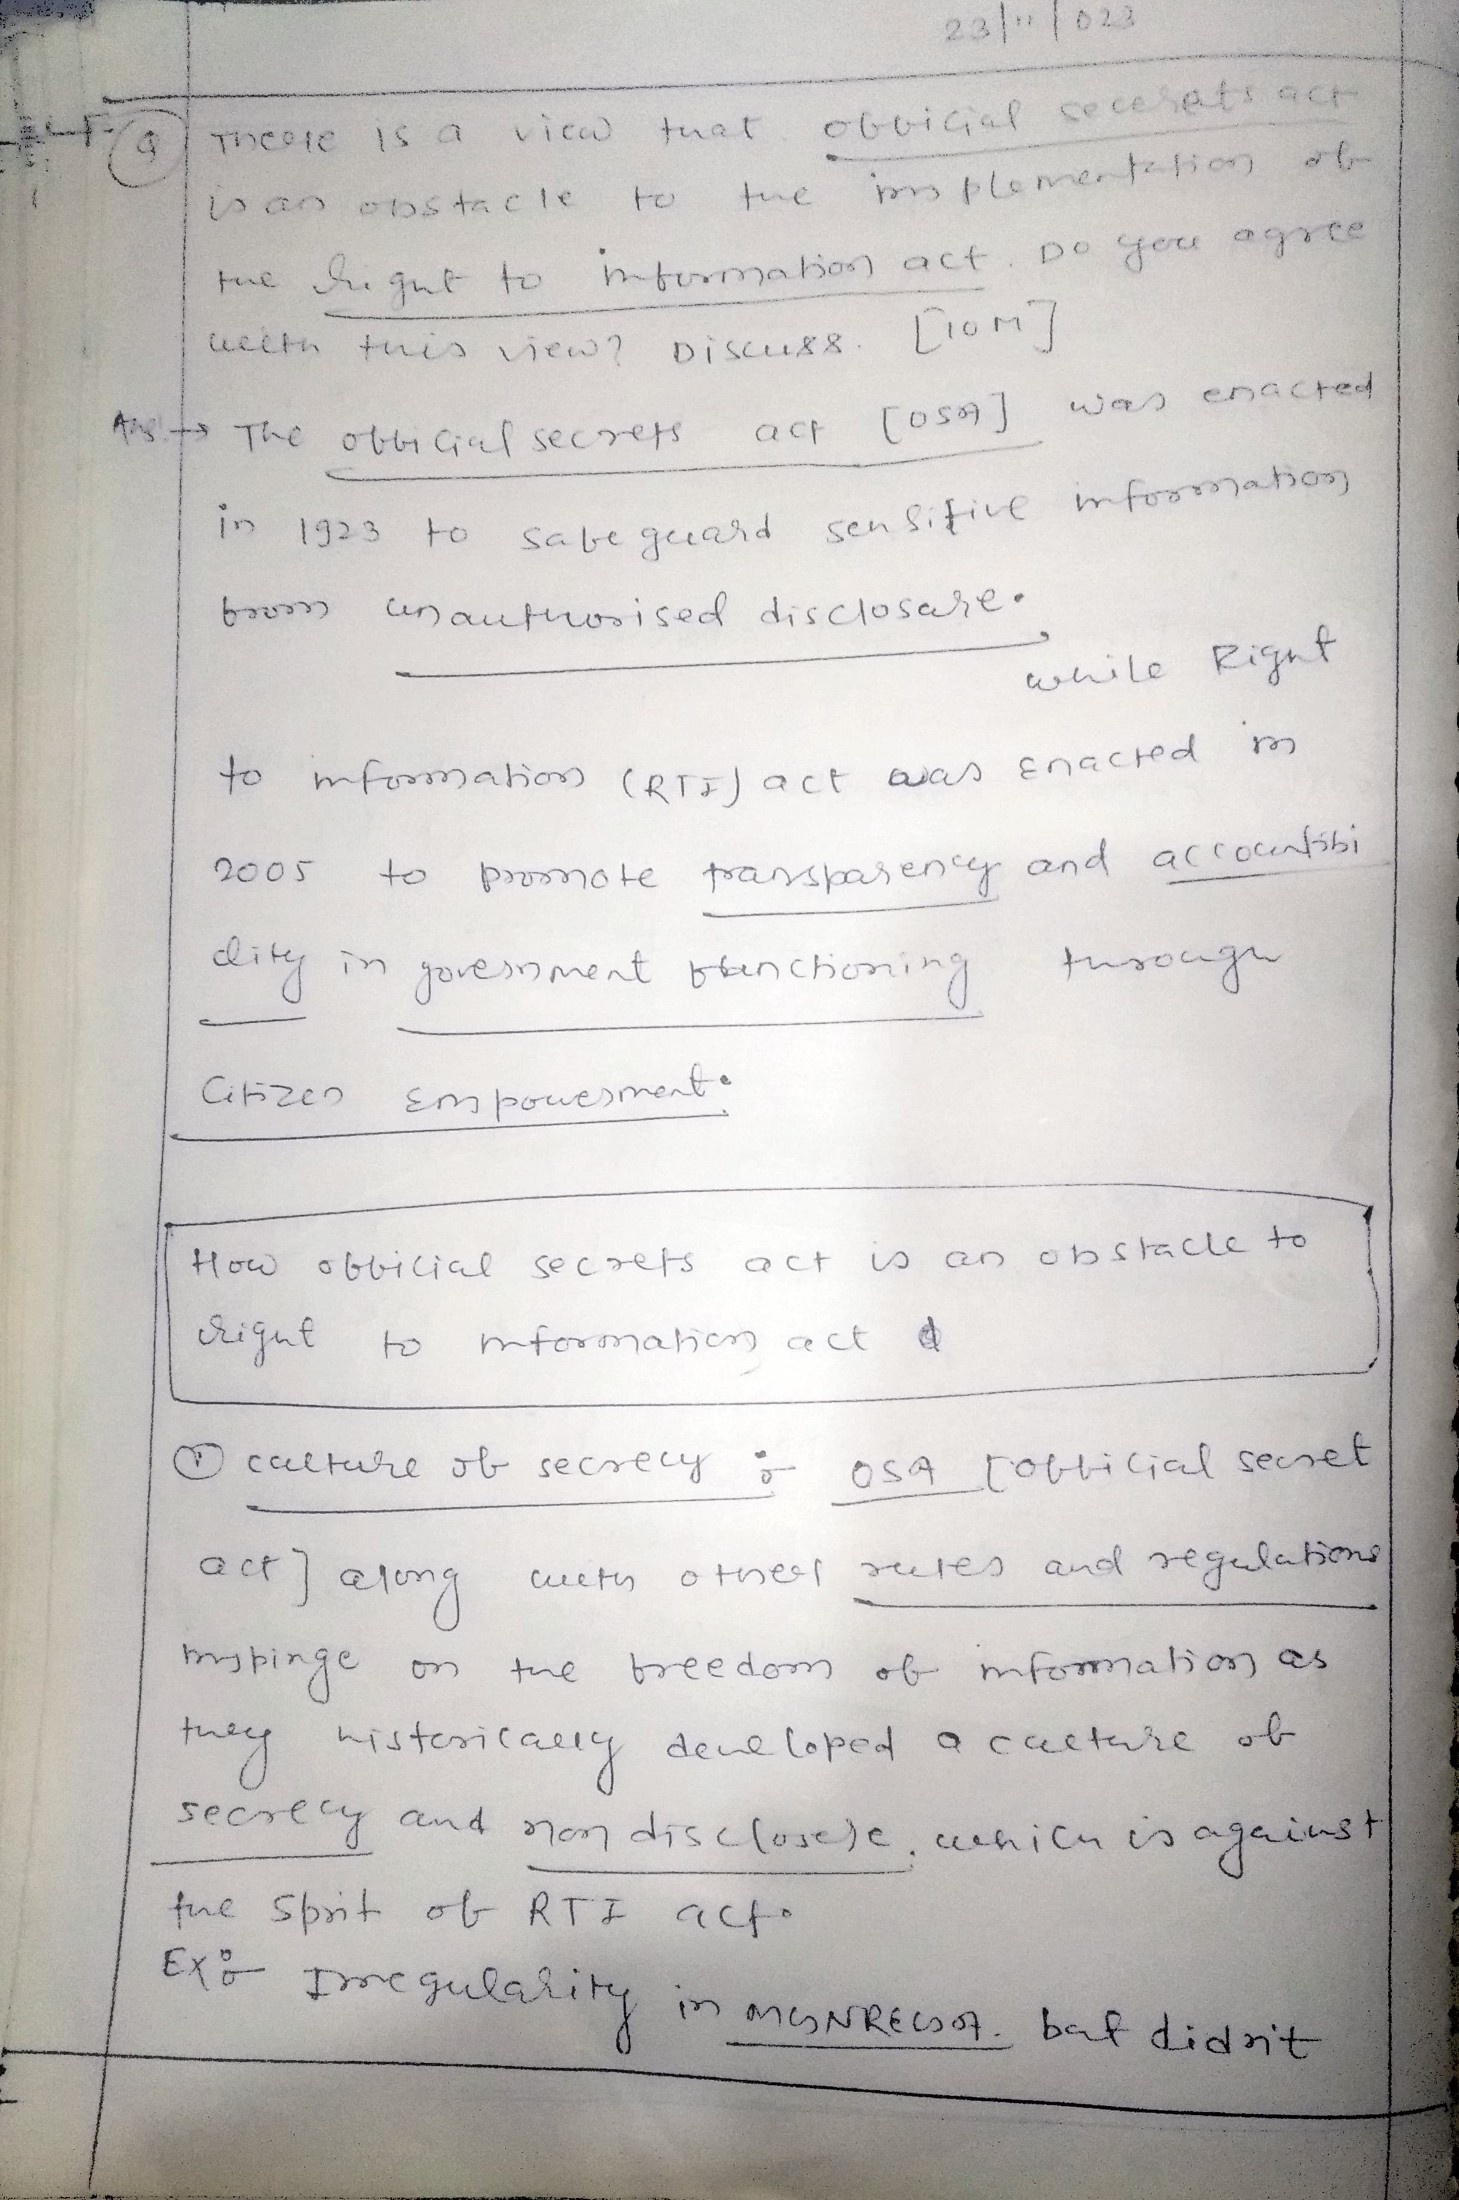 23/11/023
Q There is a view that official secerets act
is an obstacle to the implementation of
the Right to information act. Do you agree
with this view? Discuss. [10M]
Ans → The official secrets act [OSA] was enacted
in 1923 to safeguard sensitive information
from unauthorised disclosure.
while Right
to information (RTI) act was enacted in
2005 to promote transparency and accountibi
lity in government functioning through
Citizen Empowerment.
How official secrets act is an obstacle to
right to information act
① culture of secrecy : OSA [official secret
act] along with other rules and regulations
impinge on the freedom of information as
they historically developed a culture of
secrecy and non disclosere, which is against
the sprit of RTI act.
Ex: Irregularity in MGNREGA. but didn't